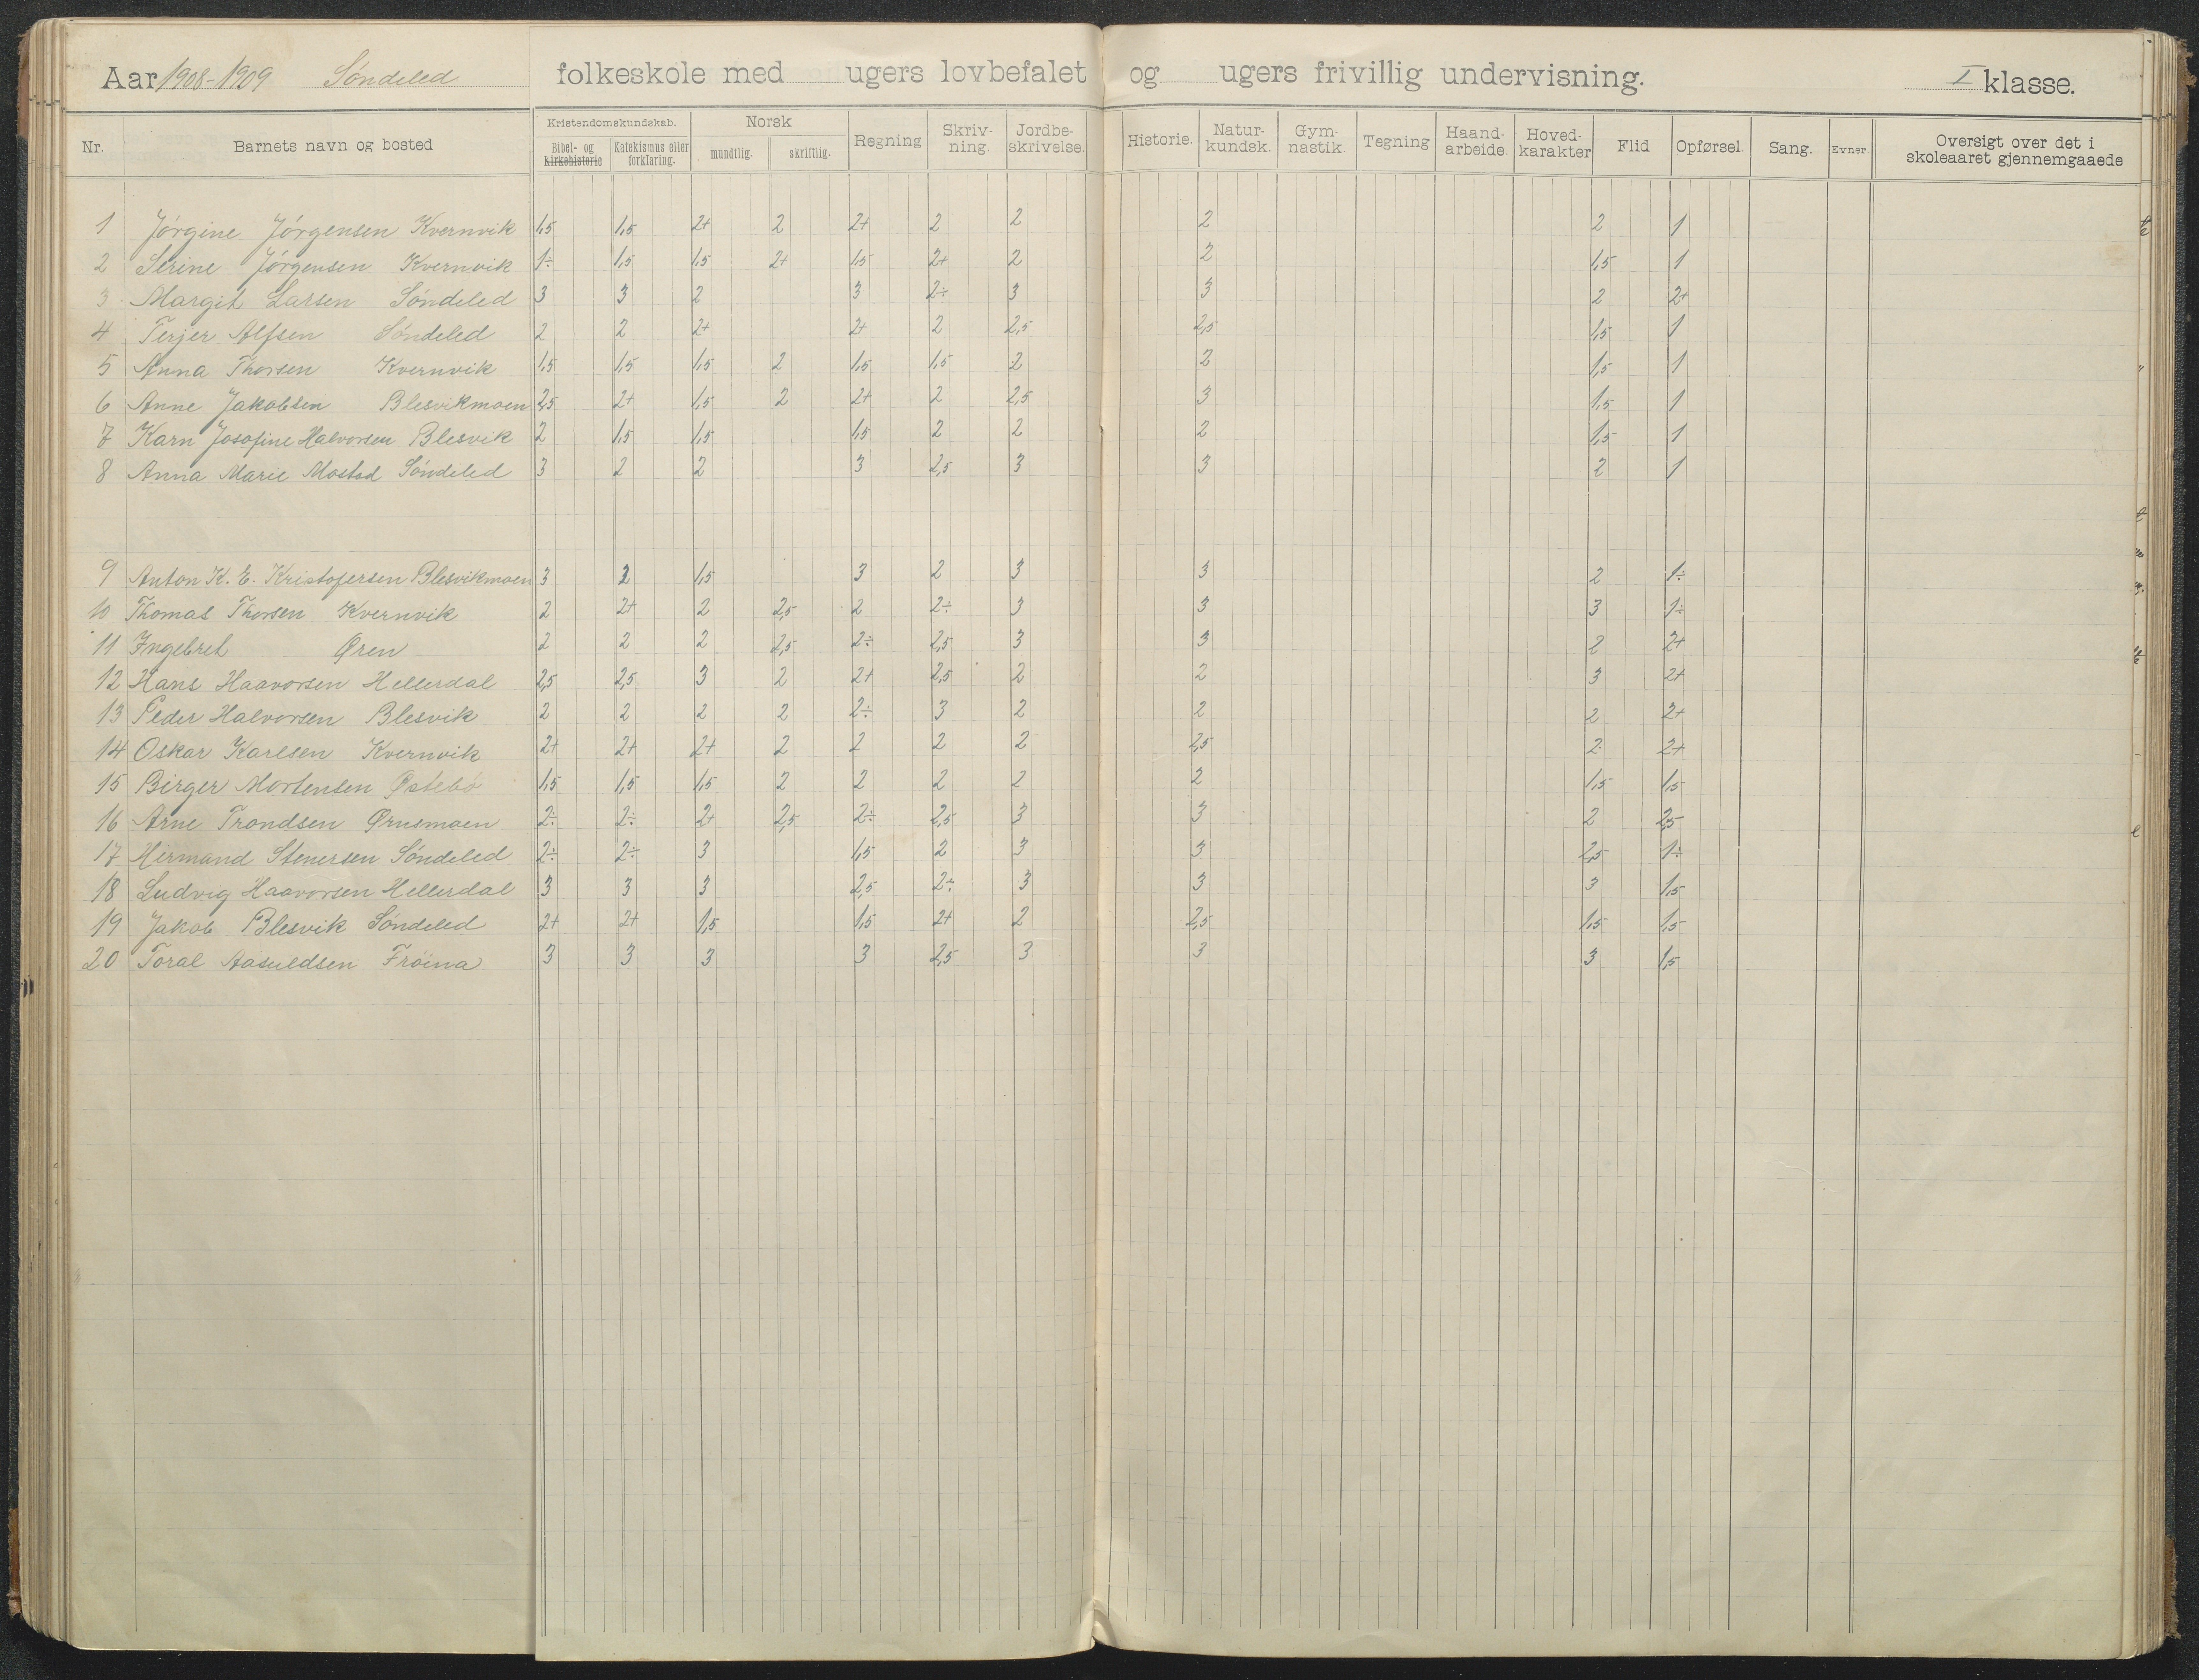 Aar 1908-1909 Söndeled folkeskole med ugers lovbefalet og ugers frivillig undervisning. I klasse.
Nr. Barnets navn og bosted Kristendomskundskab. Bibel- og kirkehistorie Katekismus eller forklaring. Norsk mundtlig. skriftlig. Regning Skriv-ning. Jordbe-skrivelse. Historie. Natur-kundsk. Gym-nastik. Tegning Haand-arbeide. Hoved-karakter Flid Opførsel. Sang. Evner. Oversigt over det i skoleaaret gjennemgaaede
1 Jörgine Jörgensen Kvernvik 1,5 1,5 2+ 2 2+ 2 2 2 2 1
2 Serine Jörgensen Kvernvik 1÷ 1,5 1,5 2+ 1,5 2+ 2 2 1,5 1
3 Margit Larsen Söndeled 3 3 2 3 2÷ 3 3 2 2+
4 Terjer Alfsen Söndeled 2 2 2+ 2+ 2 2,5 2,5 1,5 1
5 Anna Thorsen Kvernvik 1,5 1,5 1,5 2 1,5 1,5 2 2 1,5 1
6 Anne Jakobsen Blesvikmoen 2,5 2+ 1,5 2 2+ 2 2,5 3 1,5 1
7 Karn Josofine Halvorsen Blesvik 2 1,5 1,5 1,5 2 2 2 1,5 1
8 Anna Marie Mostad Söndeled 3 2 2 3 2,5 3 3 2 1
9 Anton K. E. Kristofersen Blesvikmoen 3 2 1,5 3 2 3 3 2 1÷
10 Thomas Thorsen Kvernvik 2 2+ 2 2,5 2 2÷ 3 3 3 1÷
11 Ingebret Øren 2 2 2 2,5 2÷ 2,5 3 3 2 2+
12 Hans Haavorsen Hellerdal 2,5 2,5 3 2 2+ 2,5 2 2 3 2+
13 Peder Halvorsen Blesvik 2 2 2 2 2÷ 3 2 2 2 2+
14 Oskar Karlsen Kvernvik 2+ 2+ 2+ 2 2 2 2 2,5 2 2+
15 Birger Mortensen Østebö 1,5 1,5 1,5 2 2 2 2 2 1,5 1,5
16 Arne Trondsen Ørusmoen 2÷ 2÷ 2+ 2,5 2÷ 2,5 3 3 2 2,5
17 Hermand Stenersen Söndeled 2÷ 2÷ 3 1,5 2 3 3 2,5 1÷
18 Ludvig Haavorsen Hellerdal 3 3 3 2,5 2÷ 3 3 3 1,5
19 Jakob Blesvik Söndeled 2+ 2+ 1,5 1,5 2+ 2 2,5 1,5 1,5
20 Toral Aasuldsen Fröina 3 3 3 3 2,5 3 3 3 1,5